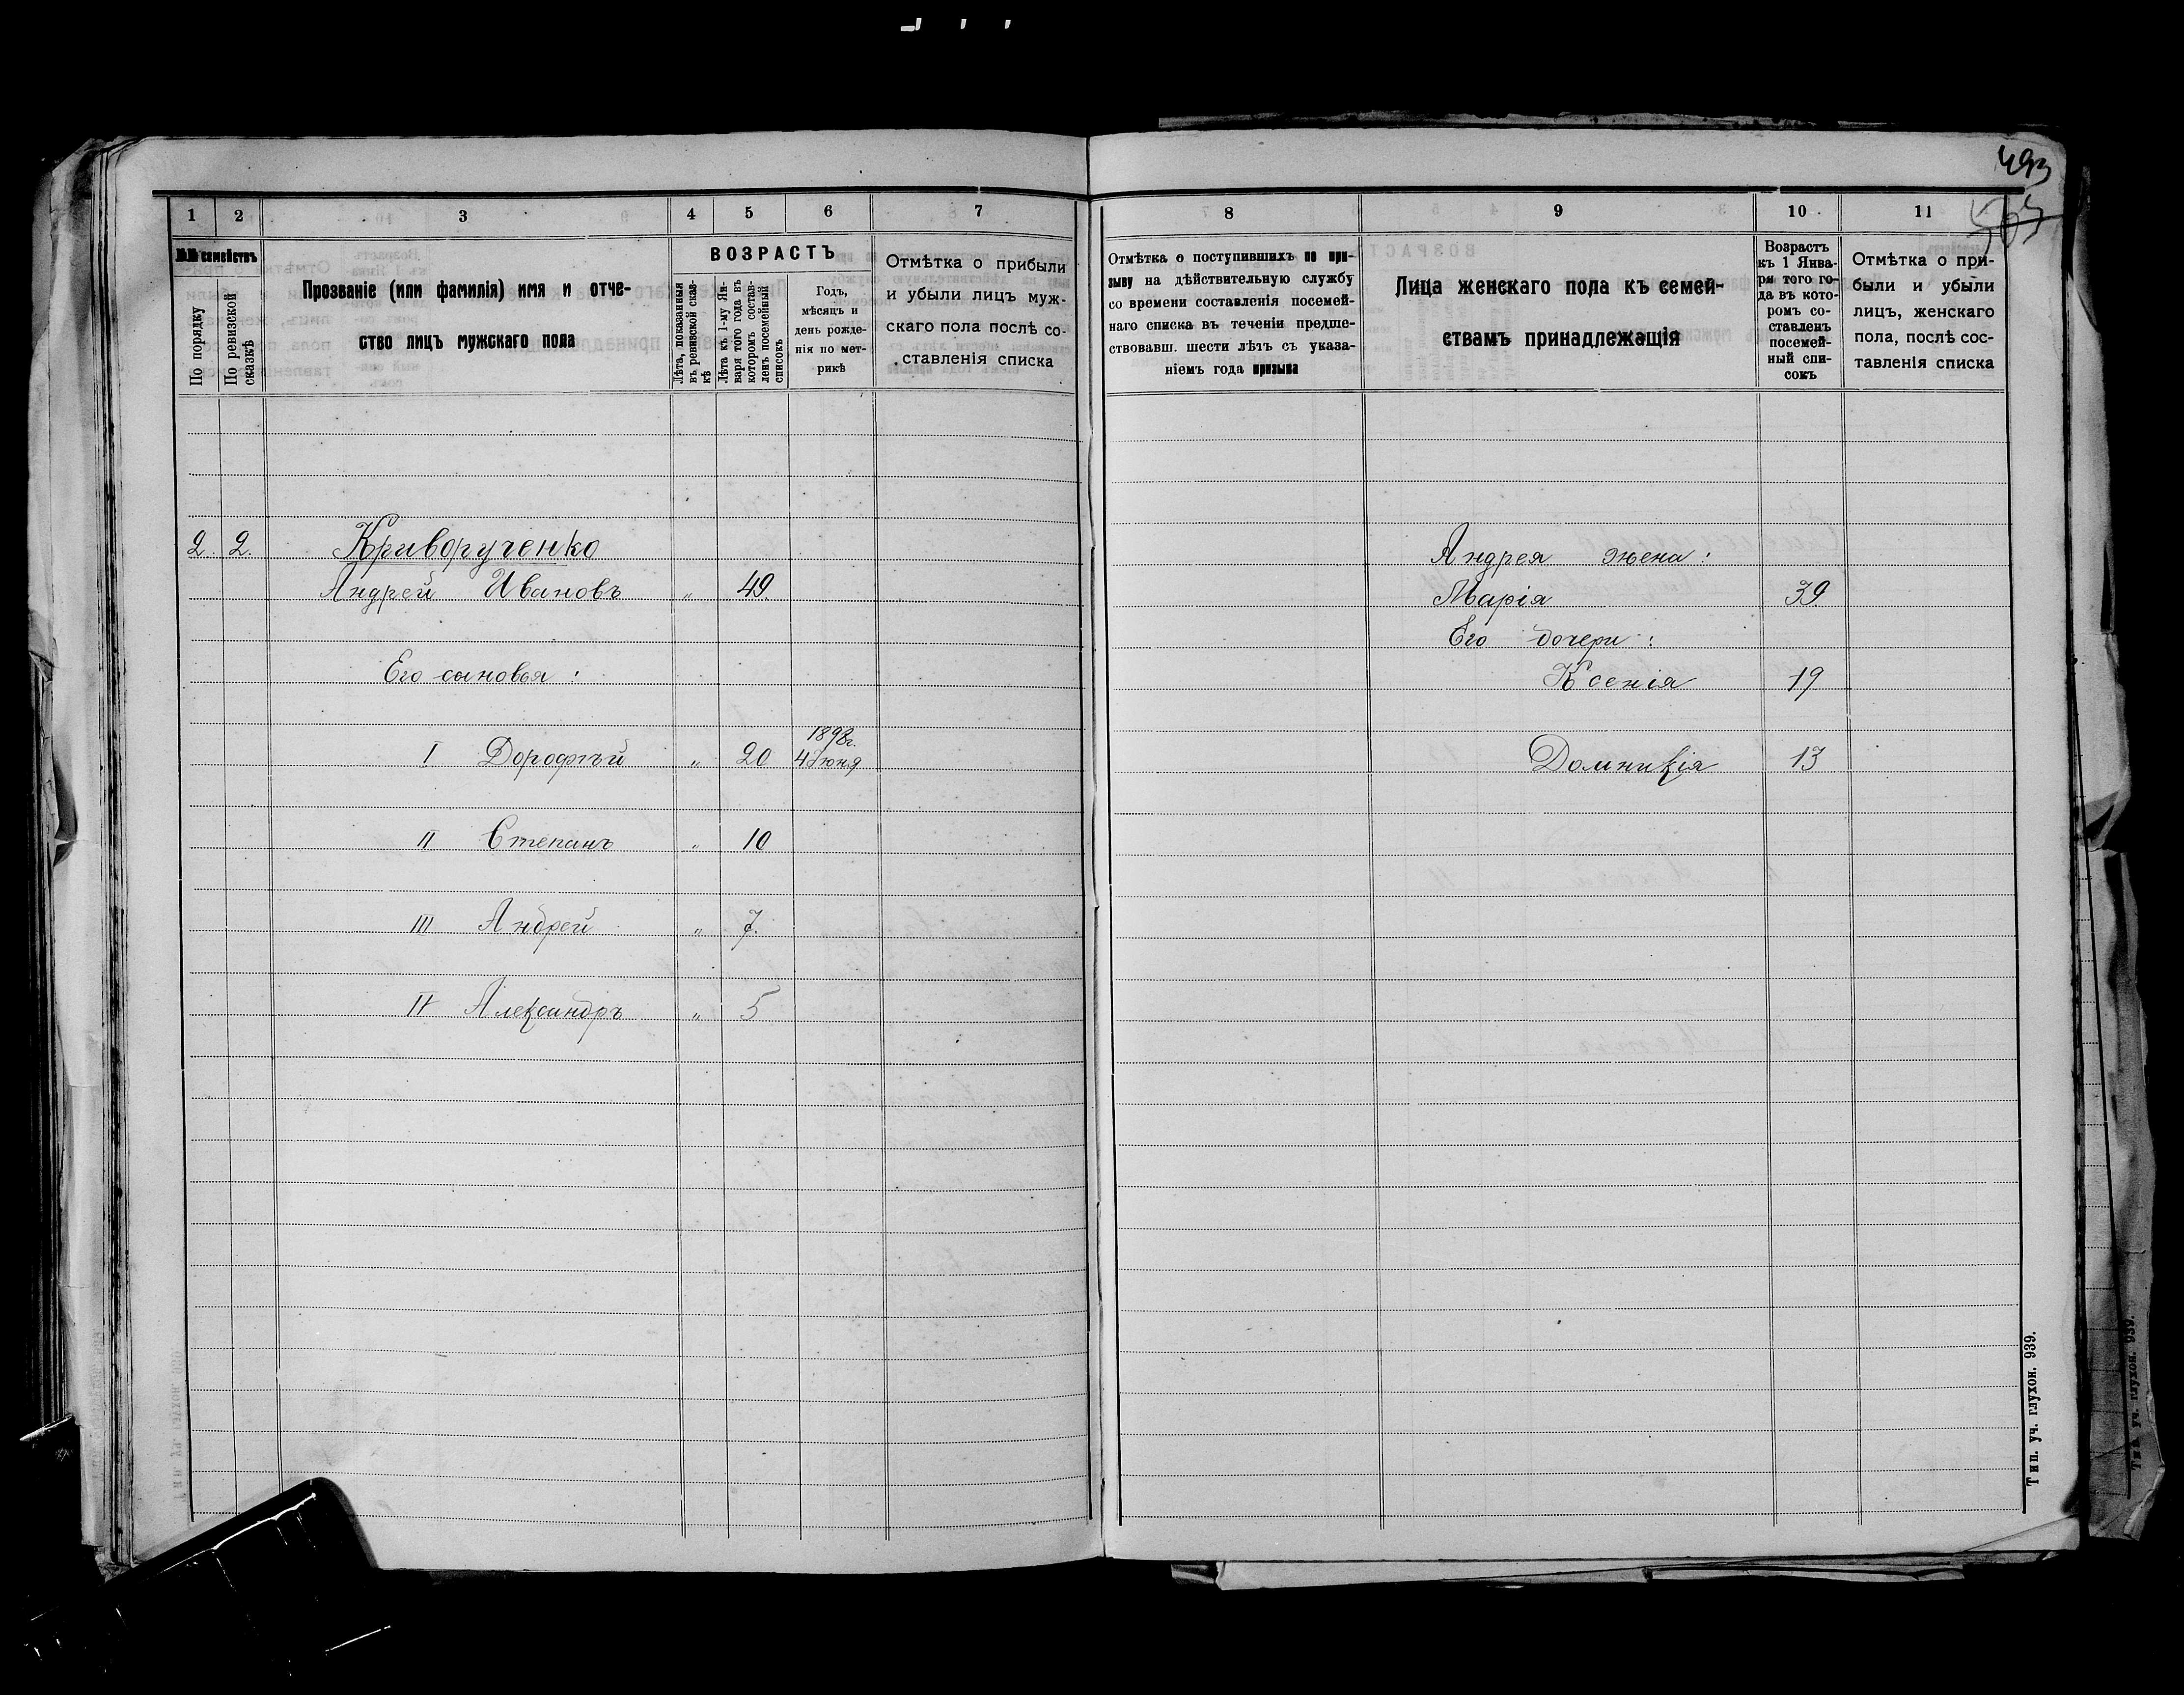 493
503
1 2 3 4 5 6 7
№№ семействъ
По порядку
По ревизской сказкѣ
Прозваніе (или фамилія) имя и отче-
ство лицъ мужскаго пола
ВОЗРАСТЪ
Лѣта, показанныя
въ ревизской сказ-
кѣ
Лѣта къ 1-му Ян-
варя того года въ
которомъ состав-
ленъ посемейный
списокъ
Годъ,
мѣсяцъ и
день рожде-
нія по мет-
рикѣ
Отмѣтка о прибыли
и убыли лицъ муж-
скаго пола послѣ со-
ставленія списка
2. 2. Криворученко
Андрей Ивановъ " 49.
Его сыновья:
1898г.
I Дорофѣй " 20 4 Іюня
II Степанъ " 10
III Андрей " 7.
IV Александръ " 5
8 9 10 11
Отмѣтка о поступившихъ по при-
зыву на дѣйствительную службу
со времени составленія посемей-
наго списка въ теченіи предше-
ствовавш. шести лѣтъ съ указа-
ніемъ года призыва
Лица женскаго пола къ семей-
ствамъ принадлежащія
Возрастъ
къ 1 Янва-
ря того го-
да въ кото-
ромъ со-
ставленъ
посемей-
ный спи-
сокъ
Отмѣтка о при-
были и убыли
лицъ, женскаго
пола, послѣ сос-
тавленія списка
Андрея жена:
Марія 39
Его дочери:
Ксенія 19
Домникія 13
Тип. уч. глухон. 939.
Тип. уч. глухон. 939.